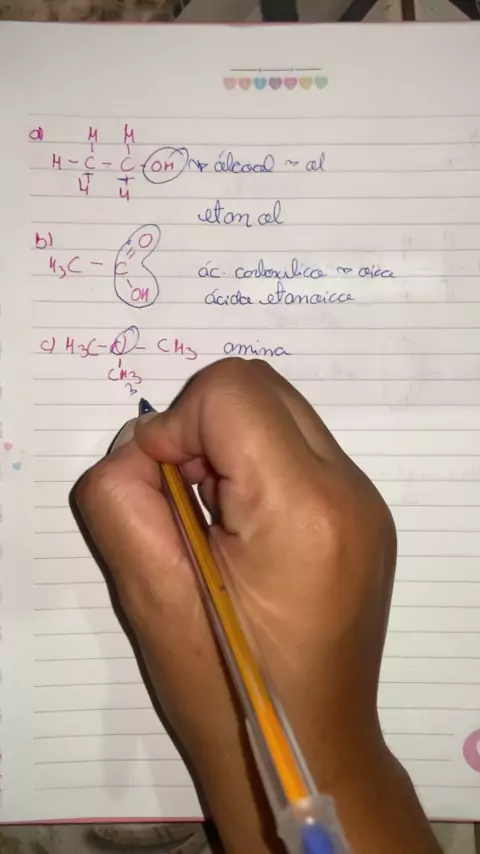 a) H H
H - C - C - OH ~> álcool ~ ol
H H
etanol
b) O
H3C - C ác. carboxílico ~> oico
OH ácido etanoico
c) H3C - N - CH3 amina
CH3
3